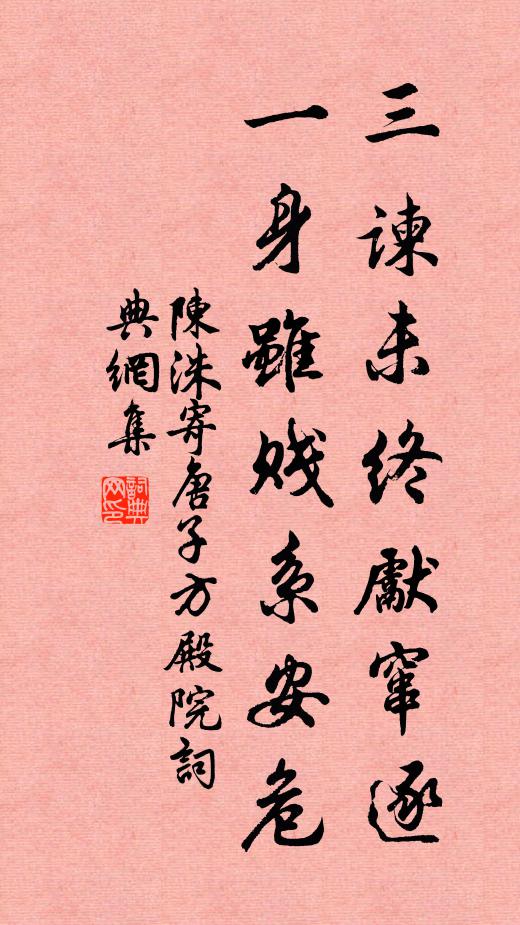 三諫未終獻窜逐
一身雖賤系安危
陳洙寄唐子方殿院詞
典網集
詞典網印